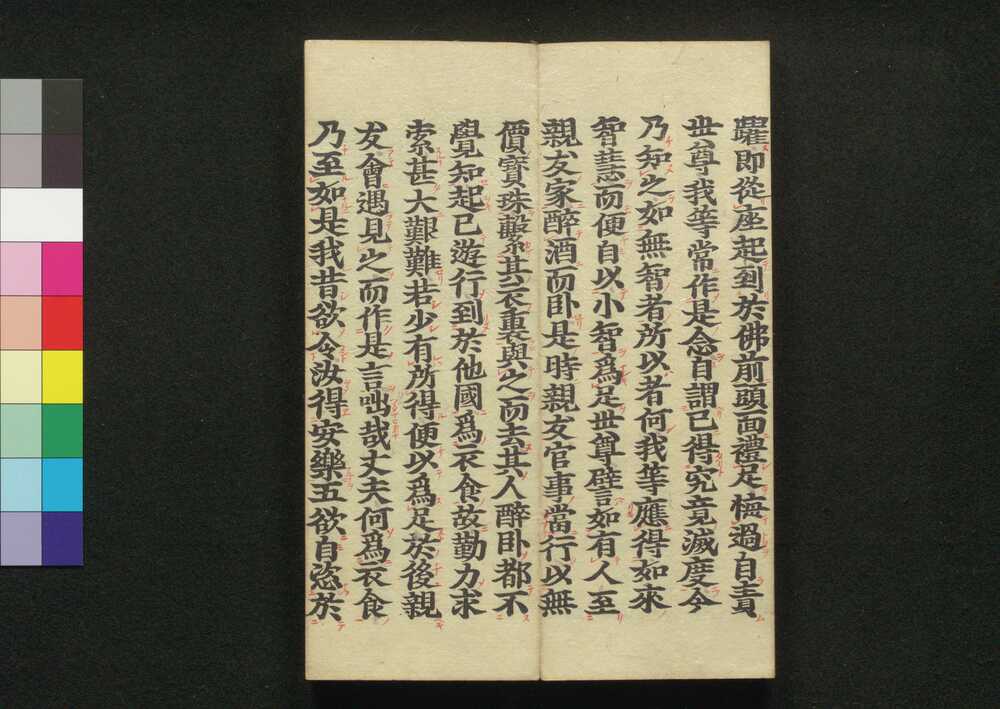 躍即從座起到於佛前頭面禮足悔過自責
世尊我等常作是念自謂已得究竟滅度今
乃知之如無智者所以者何我等應得如來
智慧而便自以小智為足世尊譬如有人至
親友家醉酒而臥是時親友官事當行以無
價寶珠繫其衣裏與之而去其人醉臥都不
覺知起已遊行到於他國為衣食故勤力求
索甚大艱難若少有所得便以為足於後親
友會遇見之而作是言咄哉丈夫何為衣食
乃至如是我昔欲令汝得安樂五欲自恣於